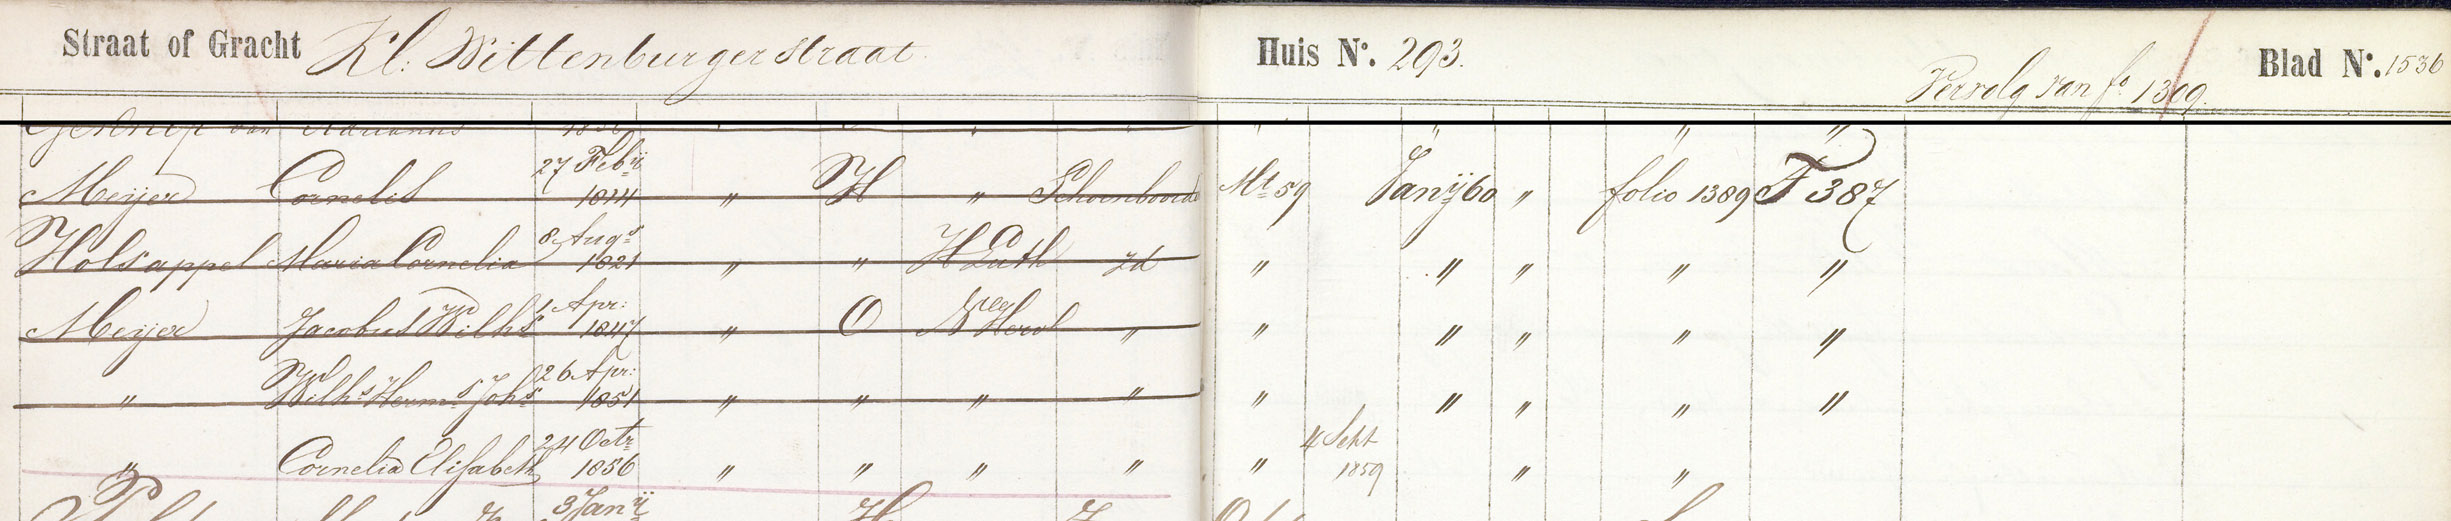 Straat of Gracht Kl: Wittenburgerstraat Huis No. 293. Blad No. 1536
Vervolg van fo 1309.
Adrianus
Meijer Cornelis 27 Febij 1814 " H " Schoenboorder Mt 59 Janij 60 " folio 1389 F 387
Holsappel Maria Cornelia 8 Augs 1821 " " H Luth zd " " " " "
Meijer Jacobus Wilhs 1 Apr: 1847 " O N Herv " " " " " "
" Wilhs Herms Johs 26 Apr: 1851 " " " " " " " " "
" Cornelia Elisabeth 24 Octr 1856 " " " " " 4 Sept 1859 " "
3 Janij H